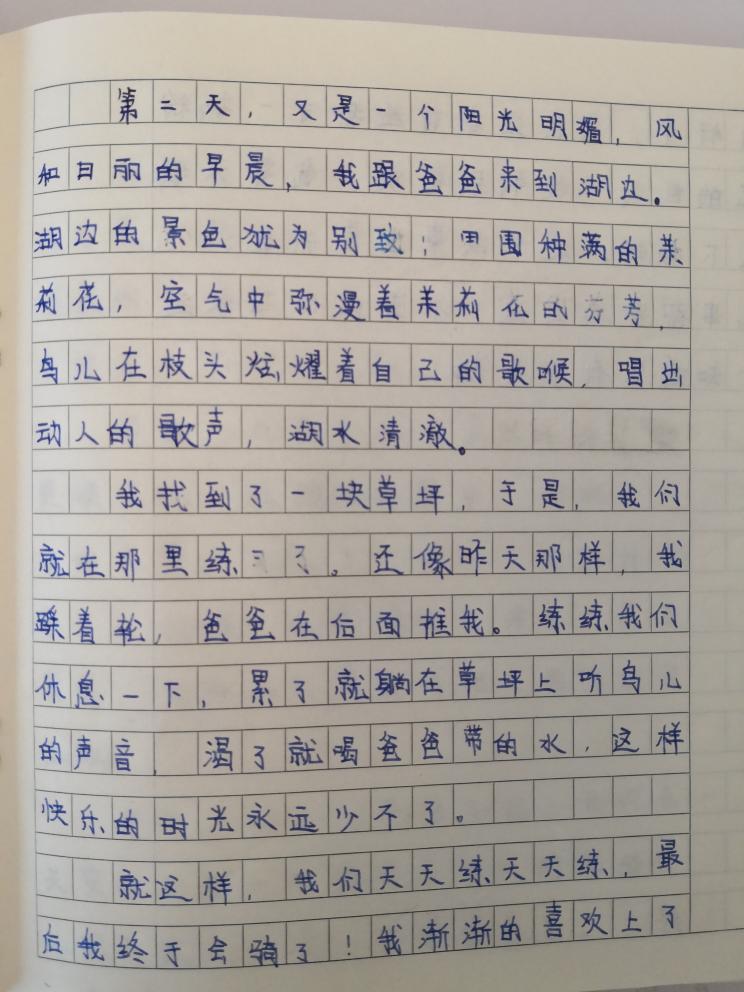 第二天，又是一个阳光明媚，风
和日丽的早晨，我跟爸爸来到湖边。
湖边的景色犹为别致：田围种满的茉
莉花，空气中弥漫着茉莉花的芬芳，
鸟儿在枝头炫耀着自己的歌喉，唱出
动人的歌声，湖水清澈。
我找到了一块草坪，于是，我们
就在那里练习了。还像昨天那样，我
踩着轮，爸爸在后面推我。练练我们
休息一下，累了就躺在草坪上听鸟儿
的声音，渴了就喝爸爸带的水，这样
快乐的时光永远少不了。
就这样，我们天天练天天练，最
后我终于会骑了！我渐渐的喜欢上了